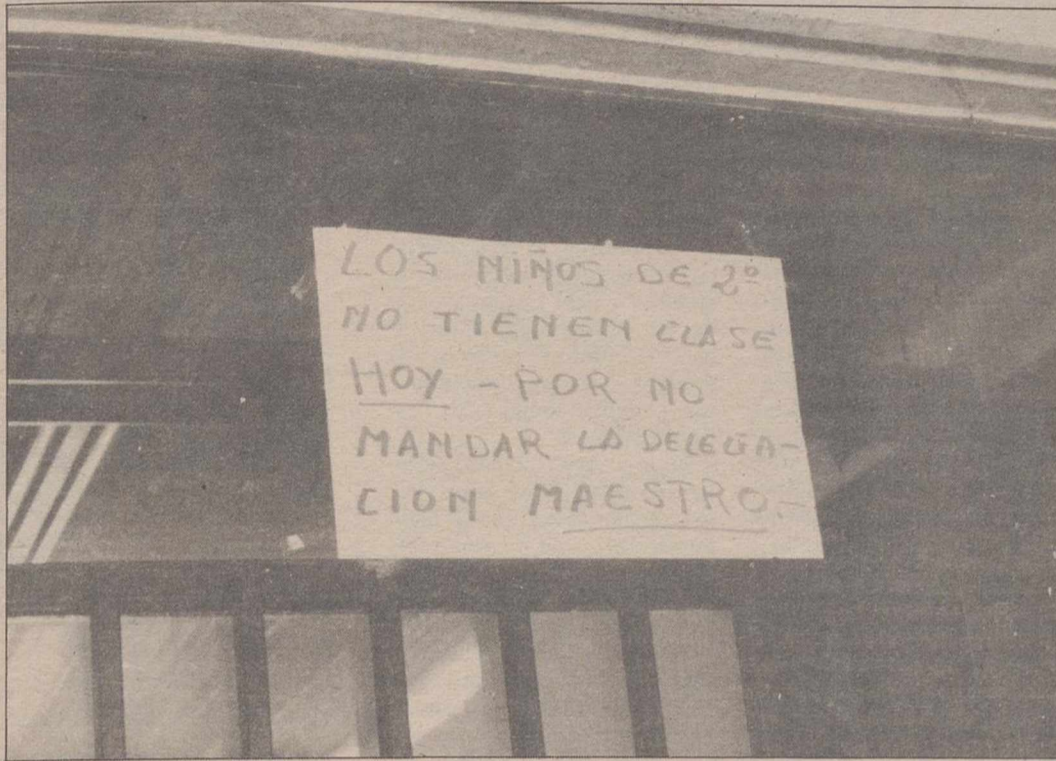 LOS NIÑOS DE 2º
NO TIENEN CLASE
HOY - POR NO
MANDAR LA DELEGA-
CION MAESTRO.-